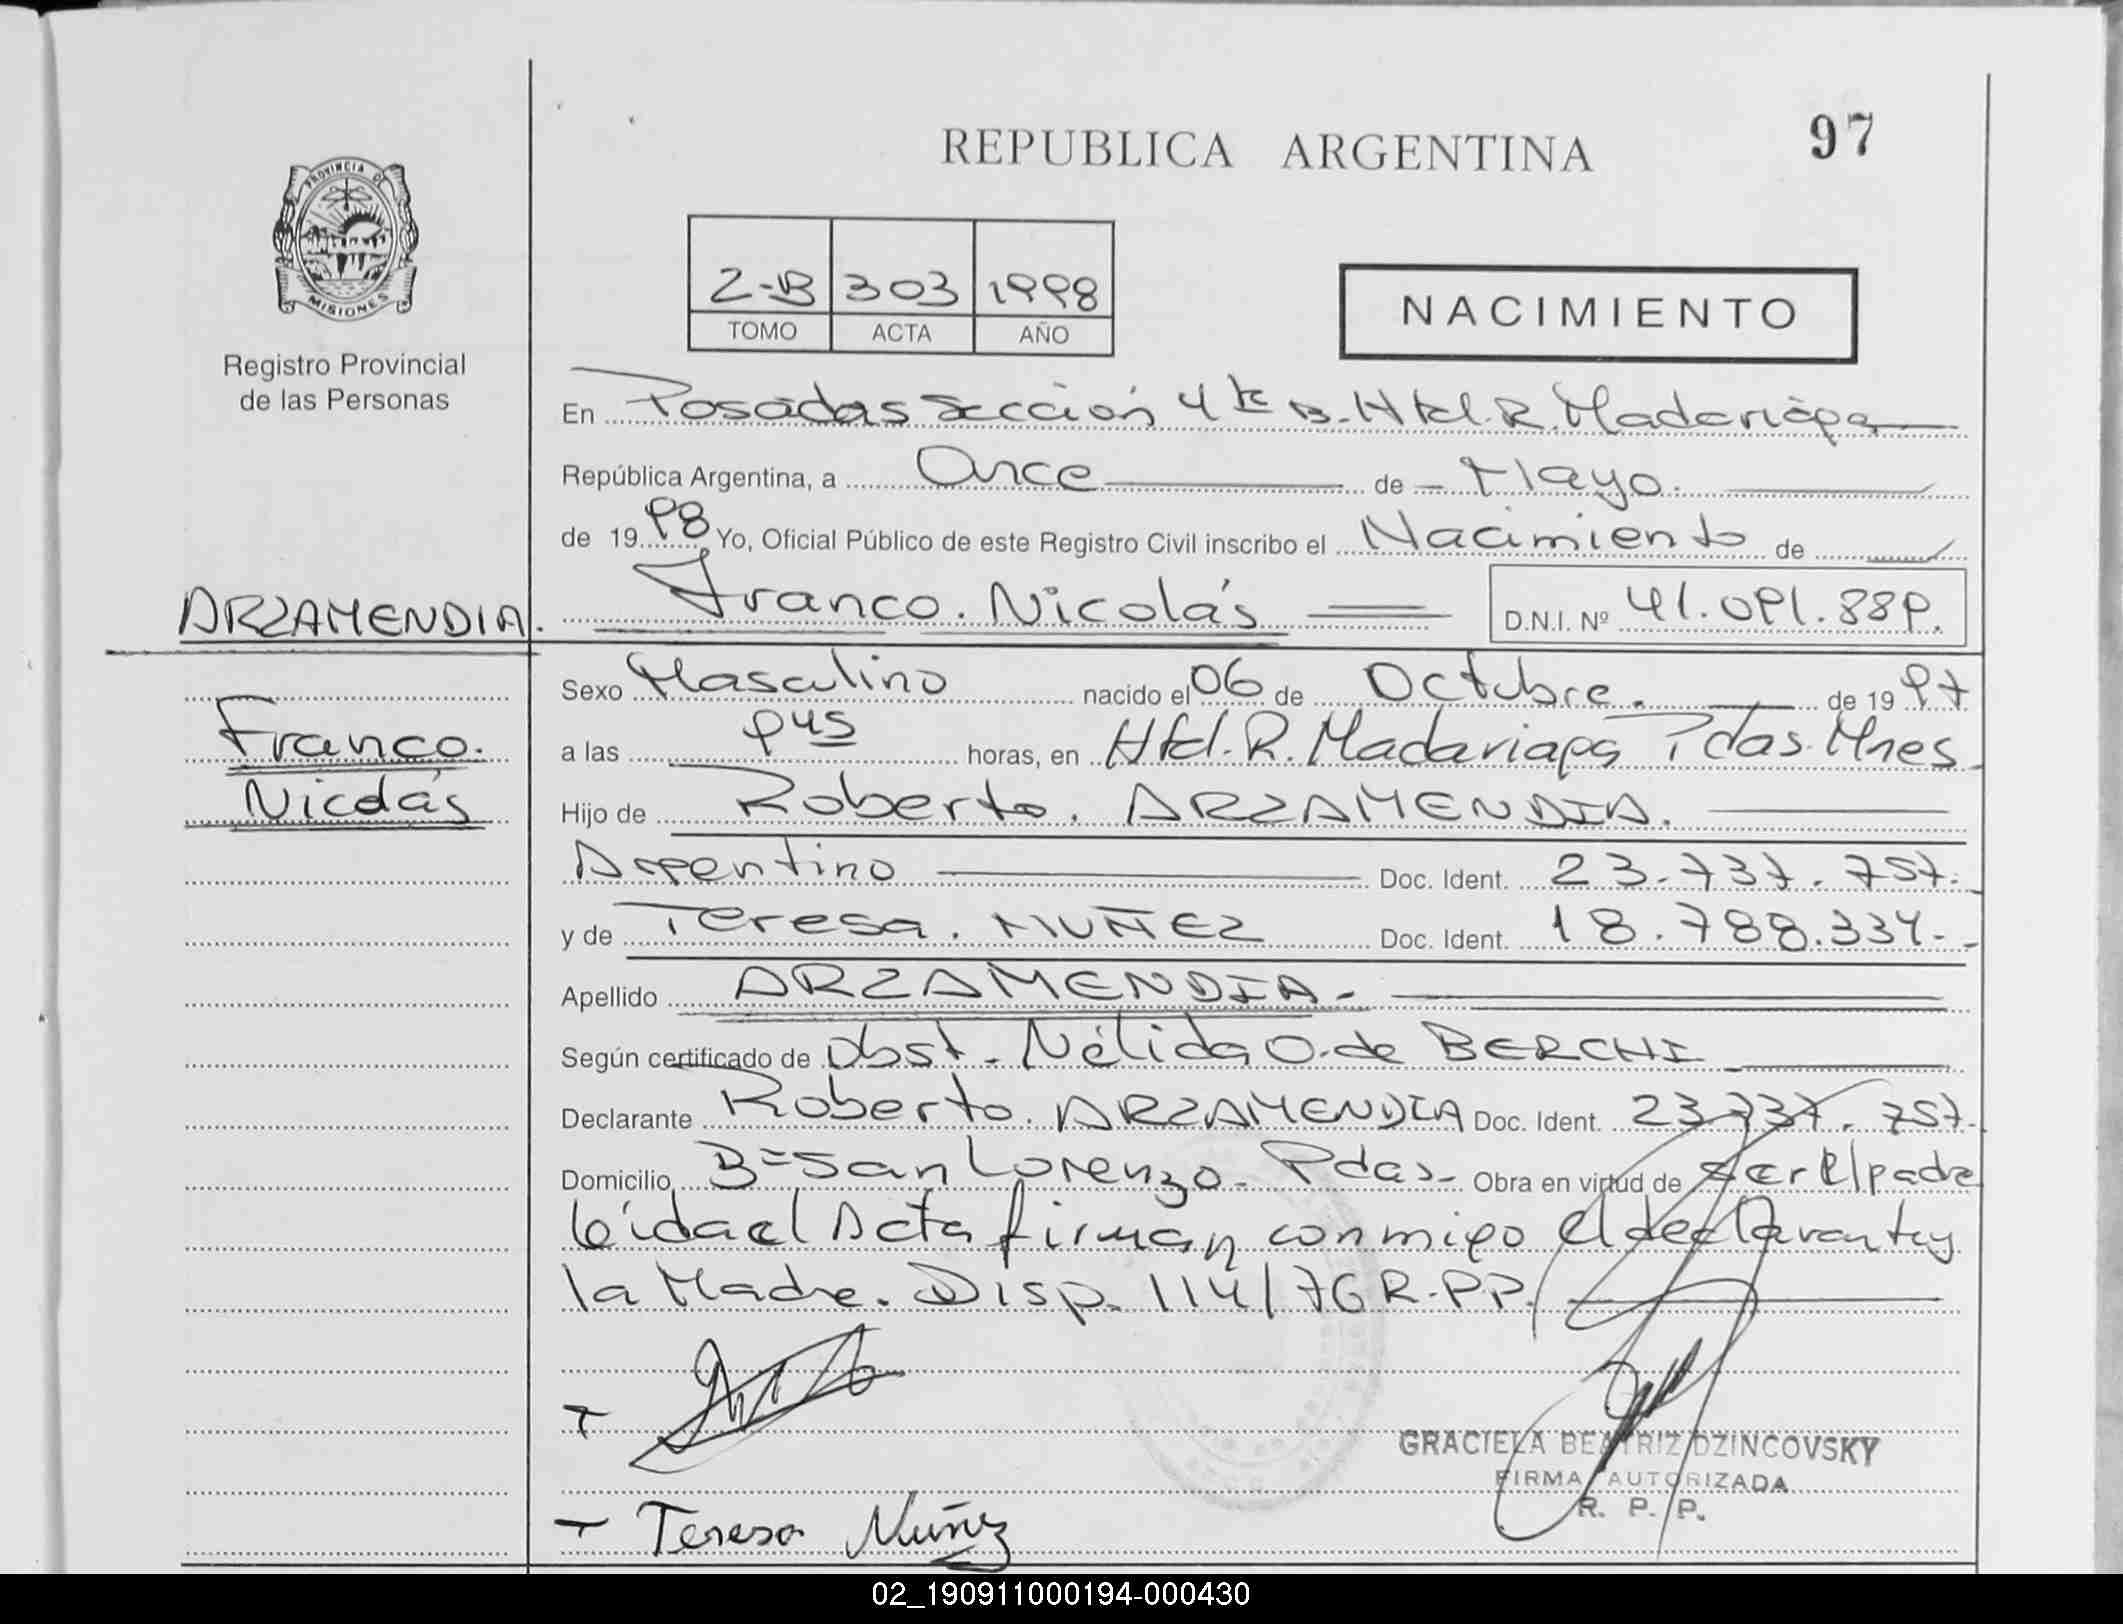 REPUBLICA ARGENTINA
97
PROVINCIA DE
MISIONES
Registro Provincial
de las Personas
2-B 303 1998
TOMO ACTA AÑO
NACIMIENTO
En Posadas Sección 4ta B. Htal. R. Madariaga
República Argentina, a Once de Mayo.
de 1998 Yo, Oficial Público de este Registro Civil inscribo el Nacimiento de
ARZAMENDIA. Franco. Nicolás D.N.I. Nº 41.091.889.
Sexo Masculino nacido el 06 de Octubre. de 1997
Franco. a las 945 horas, en Htal. R. Madariaga Pdas. Mnes
Nicolás Hijo de Roberto. ARZAMENDIA.
Argentino Doc. Ident. 23.737.757.
y de Teresa. MUÑEZ Doc. Ident. 18.788.334.-
Apellido ARZAMENDIA.-
Según certificado de Obst. Nélida O. de BERCHI
Declarante Roberto. ARZAMENDIA Doc. Ident. 23.737.757.
Domicilio Bº San Lorenzo. Pdas- Obra en virtud de ser el padre
leída el Acta firman conmigo el declarante y
la Madre. Disp. 114/76 R.P.P.
GRACIELA BEATRIZ DZINCOVSKY
FIRMA AUTORIZADA
R. P. P.
Teresa Nuñez
02_190911000194-000430